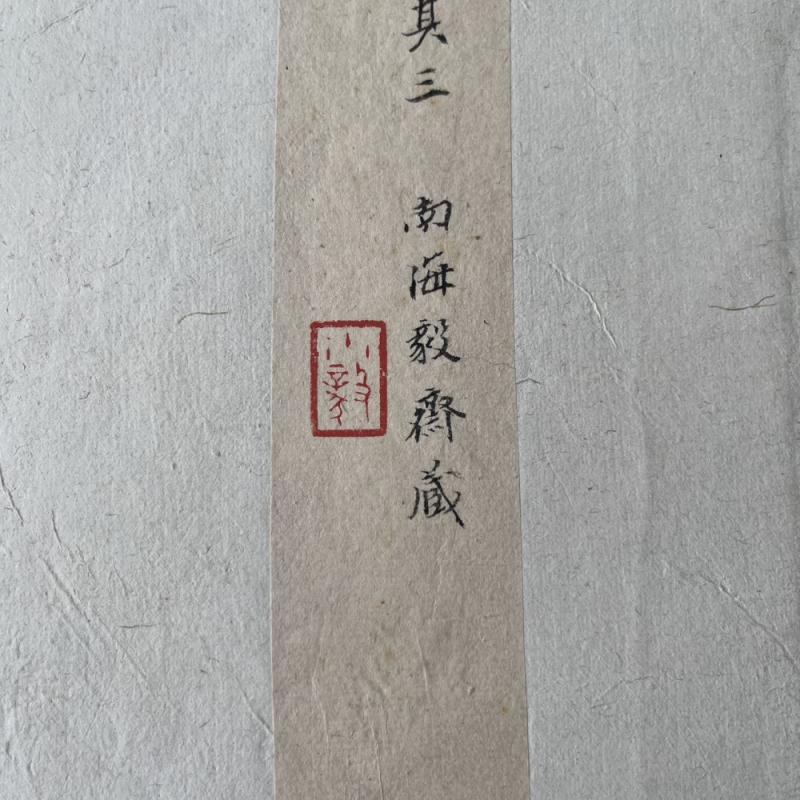 其三 南海毅齋藏
小毅